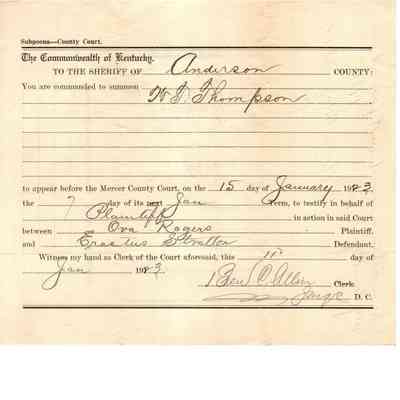 Subpoena—County Court.
The Commonwealth of Kentucky.
TO THE SHERIFF OF Anderson COUNTY:
You are commanded to summon W. S. Thompson
to appear before the Mercer County Court, on the 15 day of January 1923
the 7 day of its next Jan term, to testify in behalf of
Plaintiff in action in said Court
between Ova Rogers Plaintiff,
and Erastus Stratton Defendant.
Witness my hand as Clerk of the Court aforesaid, this 11 day of
Jan 1923. Ben C. Allin Clerk
D. C.